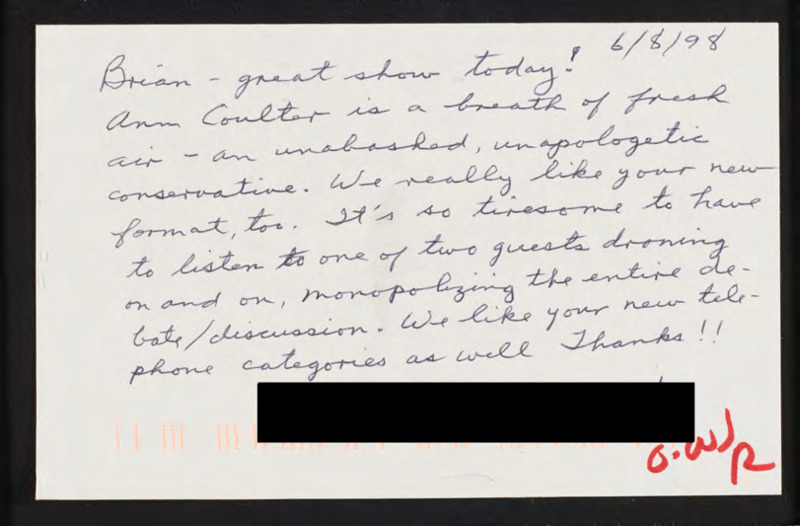 6/8/98
Brian - great show today!
Ann Coulter is a breath of fresh
air - an unabashed, unapologetic
conservative. We really like your new
format, too. It's so tiresome to have
to listen to one of two guests droning
on and on, monopolizing the entire de-
bate/discussion. We like your new tele-
phone categories as well Thanks!!